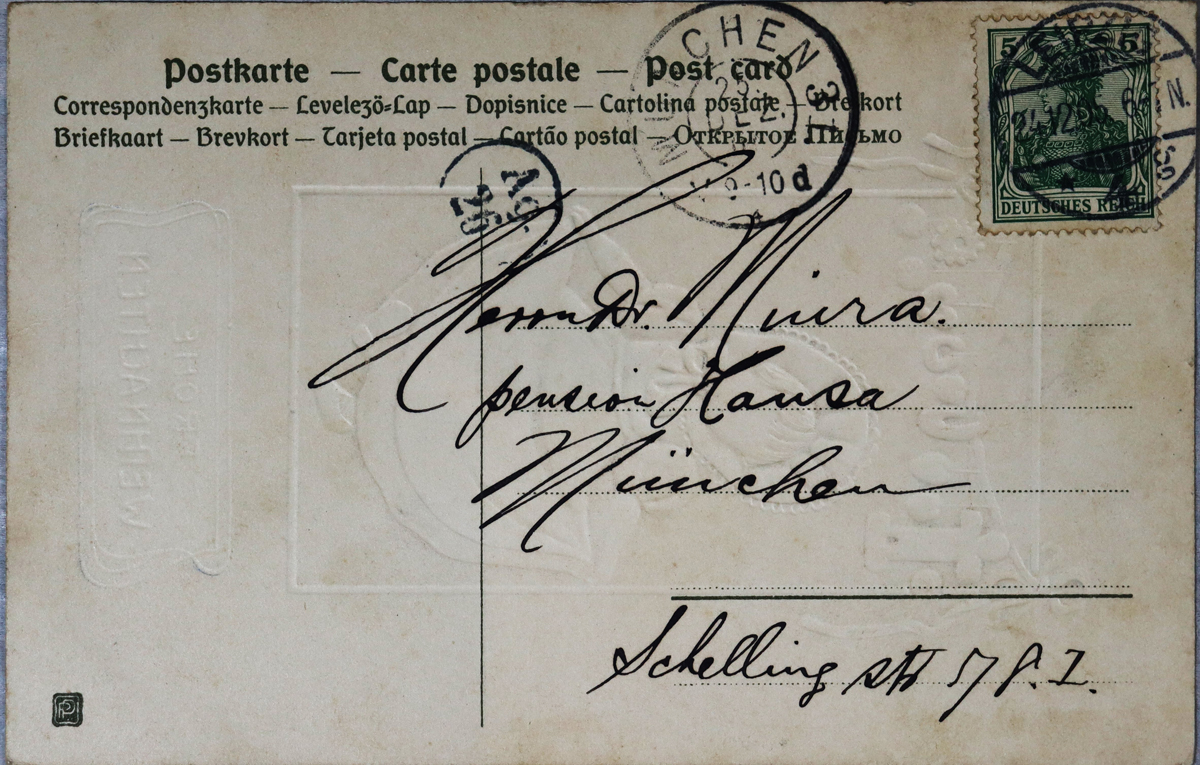 Postkarte — Carte postale — Post card
Correspondenzkarte — Levelező-Lap — Dopisnice — Cartolina postale — Brefkort
Briefkaart — Brevkort — Tarjeta postal — Cartão postal — Открытое Письмо
MÜNCHEN 31
25.
DEZ.
8-10 d
5 5
DEUTSCHES REICH
LEIPZIG
24.12.05. 6-7 N.
Ag.
26
Herrn Dr. Miura.
pension Hansa
München
Schelling str